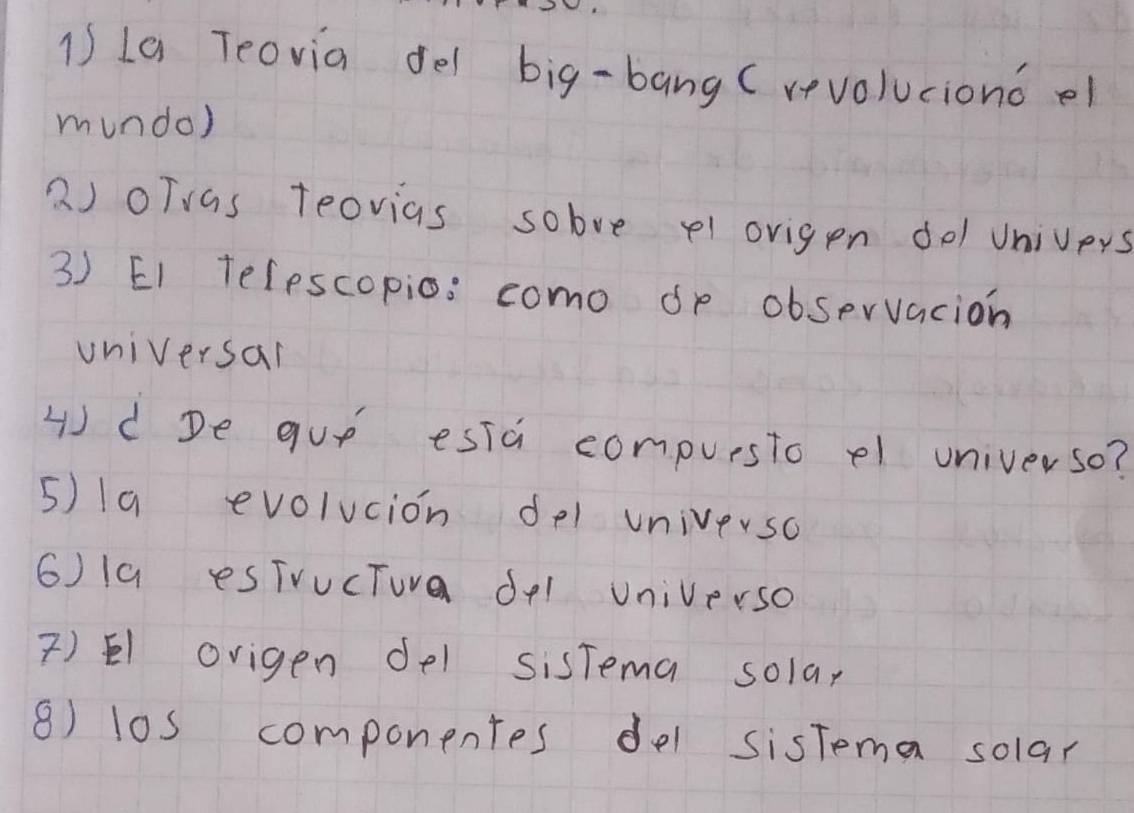 1) La Teoría del big-bang (revolucionó el
mundo)
2) oTras Teorías sobre el origen del Univers
3) El Telescopio: como de observación
universal
4) ¿ De qué esTá compuesTo el universo?
5) la evolución del universo
6) la esTrucTura del universo
7) El origen del sisTema solar
8) los componenTes del sisTema solar